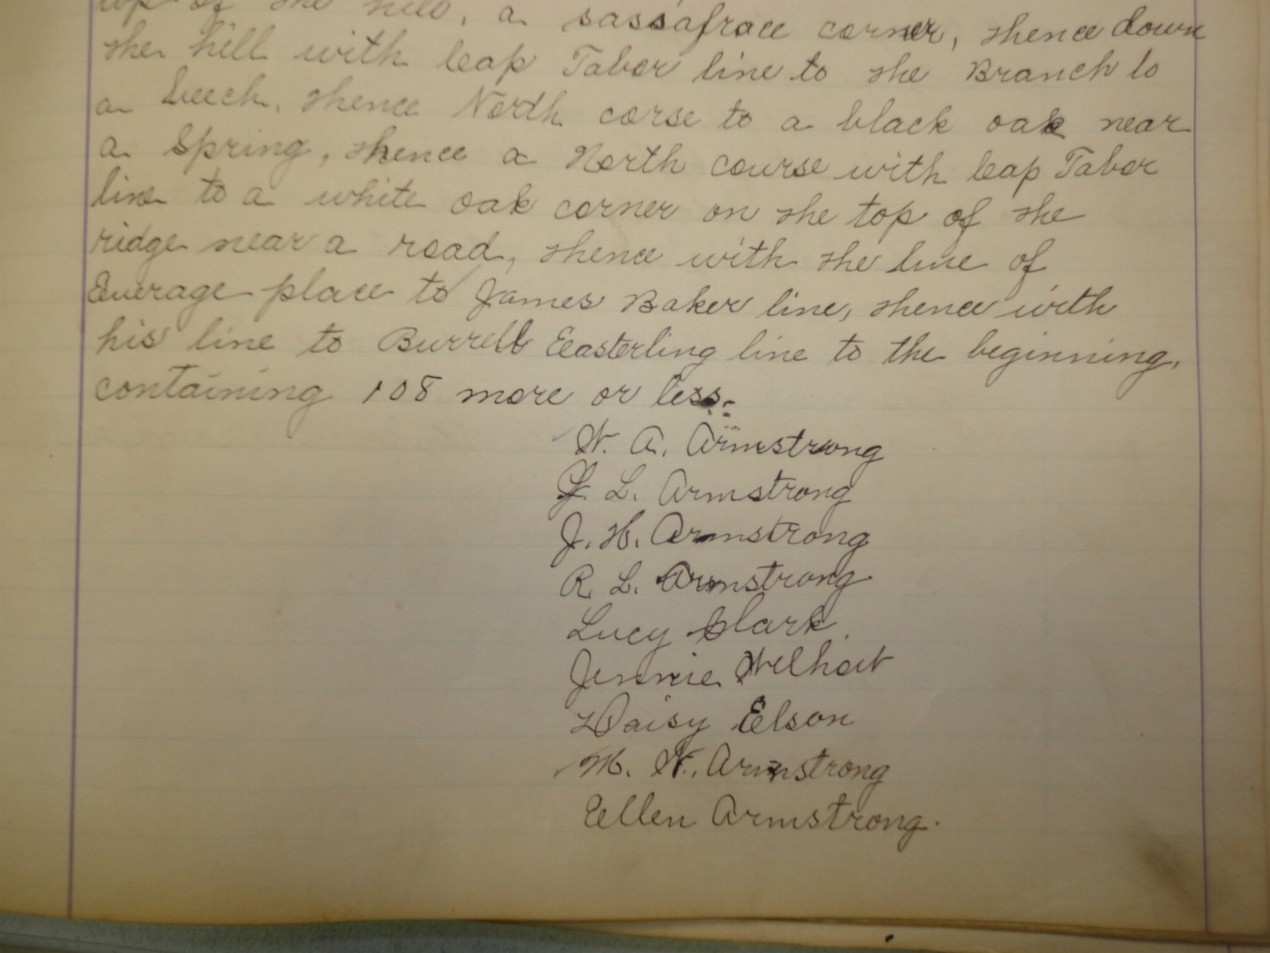 top of the hill, a sassafrace corner, thence down
the hill with leap Tabor line to the Branch to
a beech, thence North corse to a black oak near
a Spring, thence a North course with leap Tabor
line to a white oak corner on the top of the
ridge near a road, thence with the line of
Everage place to James Baker line, thence with
his line to Burrell Easterling line to the beginning,
containing 108 more or less.
W. A. Armstrong
L. Armstrong
J. H. Armstrong
R. L. Armstrong
Lucy Clark.
Jennie Welhoit
Daisy Elson
M. W. Armstrong
Ellen Armstrong.